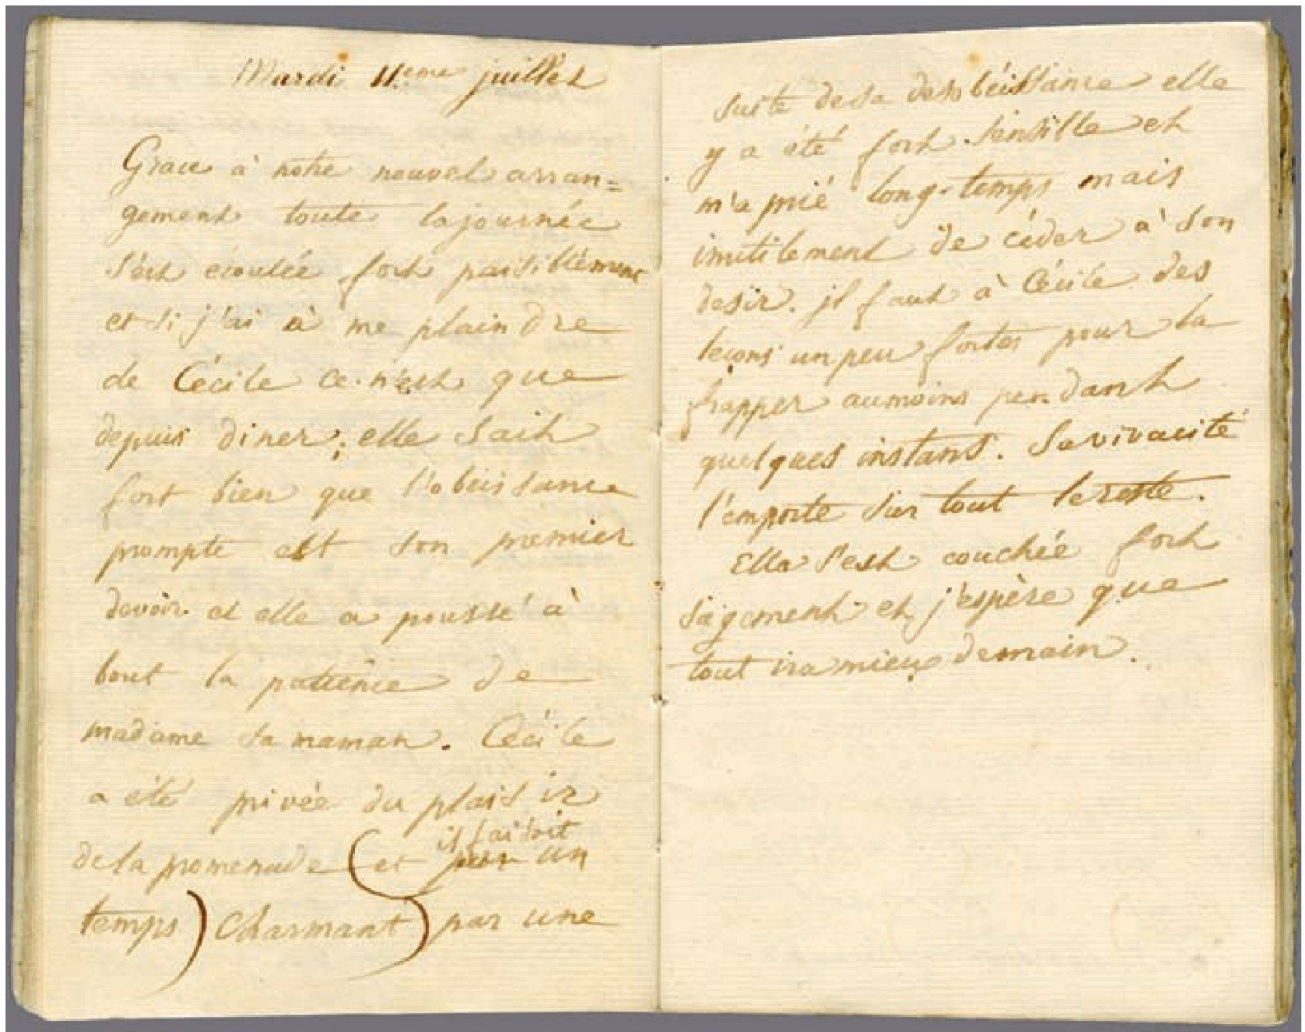 Mardi 11.eme juillet
Grace à notre nouvel arran=
gement toute la journée
s'est ecoulée fort paisiblement
et si j'ai à me plaindre
de Cécile ce n'est que
depuis diner; elle sait
fort bien que l'obeissance
prompte est son premier
devoir et elle a poussé à
bout la patience de
madame sa maman. Cécile
a été privée du plaisir
il faisoit
de la promenade (et par un
temps) charmant) par une
suite de sa desobéissance elle
y a été fort sensible et
m'a prié long-temps mais
inutilement de céder à son
desir. il faut à Cécile des
leçons un peu fortes pour la
frapper aumoins pendant
quelques instans. Sa vivacité
l'emporte sur tout le reste.
Elle s'est couchée fort
sagement et j'espère que
tout ira mieux demain.